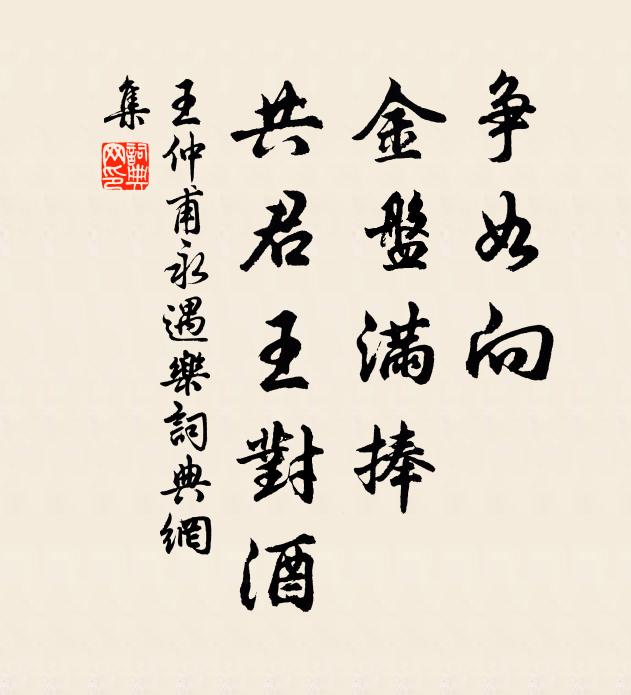 争如向
金盤滿捧
共君王對酒
王仲甫永遇樂詞典網
集
詞典
网印